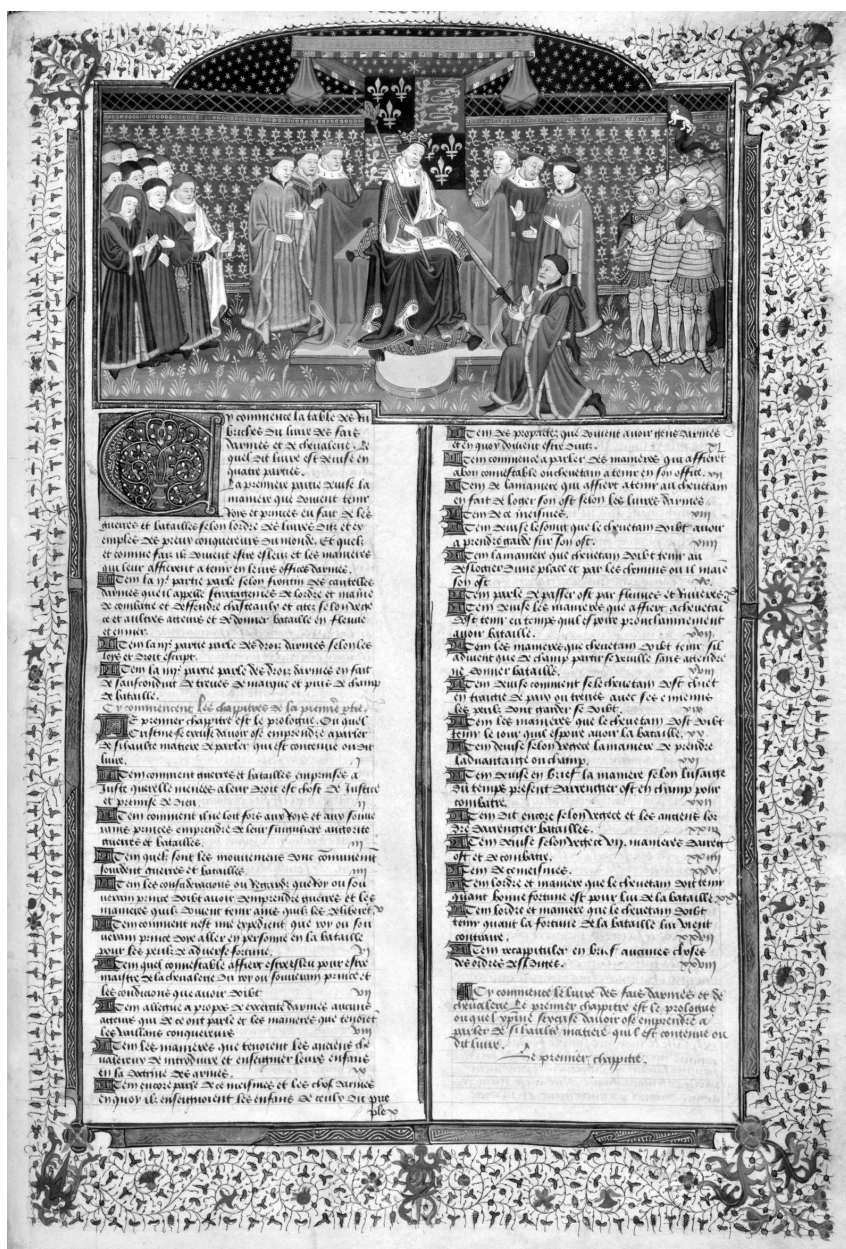 Cy commence la table des Ru
briches du livre des fais
darmes et de chevalerie. Le
quel dit livre est devise en
quatre parties.
La premiere partie devise la
maniere que doivent tenir
Roys et princes en fait de les
guerres et batailles selon lordre des livres dits et ex
emples des preux conquereurs du monde. Et quelz
et comme fais ilz doivent estre esleuz et les manieres
qui leur affierent a tenir en leurs offices darmes.
Item la ije partie parle selon frontin des cautelles
darmes que il appelle stratagemes de lordre et maniere
de combatre et deffendre chasteaulx et citez selon vege
ce et aultres acteurs et de donner bataille en fleuve
et en mer.
Item la iije partie parle des droiz darmes selon les
loys et droit escript.
Item la iiije partie parle des droiz darmes en fait
de saufconduit de treves de marque et puis de champ
de bataille.
Cy commencent les chappitres de la premiere ptie.
Le premier chapitre est le prologue. Ou quel
Cristine se excuse davoir ose emprendre a parler
de si haulte matiere de parler qui est contenue ou dit
livre. j
Item comment guerres et batailles emprises a
Juste querelle menees a leur droit est chose de Justice
et permise de dieu. ij
Item comment il ne loit fors aux Roys et aux souve
rains princes emprendre de leur singuliere auctorite
guerres et batailles. iij
Item quelz sont les mouvemens dont communement
sourdent guerres et batailles. iiij
Item les consideracions ou Regards que Roy ou sou
verain prince doibt avoir demprendre guerres et les
manieres quilz doivent tenir ains quilz les deliberent. v
Item comment nest mie expedient que roy ou sou
verain prince doye aller en personne en la bataille
pour les perilz de adverse fortune. vj
Item quel connestable affiert estre esleu pour estre
maistre de la chevalerie du roy ou souverain prince et
les condicions que avoir doibt vij
Item allegue a propos de exercite darmes aucuns
acteurs qui de ce ont parle et les manieres que tenoient
les vaillans conquereurs viij
Item les manieres que tenoient les anciens che
valereux de introduire et enseigner leurs enfans
en la doctrine des armes. ix
Item encore parle de ce meismes et les chos darmes
en quoy ilz enseignoient les enfans de ceulx du pue
ple x
Item des proprietez que doivent avoir gens darmes
et en quoy doivent estre duitz. xj
Item commence a parler des manieres qui affierent
a bon connestable ou chevetain a tenir en son office. xij
Item de la maniere qui affiert a tenir au chevetain
en fait de loger son ost selon les livres darmes.
Item de ce meismes. xiij
Item devise le soing que le chevetain doibt avoir
a prendre garde sur son ost. xiiij
Item la maniere que chevetain doibt tenir au
deslogier dune place et par les chemins ou il maine
son ost xv.
Item parle de passer ost par fleuves et Rivieres
Item devise les manieres que affiert a chevetain
dost tenir en temps quil espoire prouchainnement
avoir bataille. xvij.
Item les manieres que chevetain doibt tenir sil
advient que de champ partir se veuille sans attendre
ne donner bataille. xviij
Item devise comment se le chevetain dost chiet
en traictie de paix ou treves avec ses ennemis
les perilz dont garder se doibt. xix
Item les manieres que le chevetain dost doibt
tenir le iour quil espoire avoir la bataille. xx.
Item devise selon vegece la maniere de prendre
ladvantaige ou champ. xxj
Item devise en brief la maniere selon lusaige
du temps present darrengier ost en champ pour
combatre. xxij
Item dit encore selon vegece et les anciens lor
dre darrengier batailles. xxiij
Item devise selon vegece vij. manieres darrengier
ost et de combatre. xxiiij
Item de ce meismes. xxv.
Item lordre et maniere que le chevetain doit tenir
quant bonne fortune est pour lui de la bataille xxvj
Item lordre et maniere que le chevetain doibt
tenir quant la fortune de la bataille lui vient
contraire. xxvij
Item recappituler en brief aucunes choses
des ordres desxdites. xxviij
Cy commence le livre des fais darmes et de
chevalerie Le premier chapitre est le prologue
ou quel xpine sexcuse davoir ose emprendre a
parler de si haulte matiere qui est contenue ou
dit livre.
Le premier chappitre.